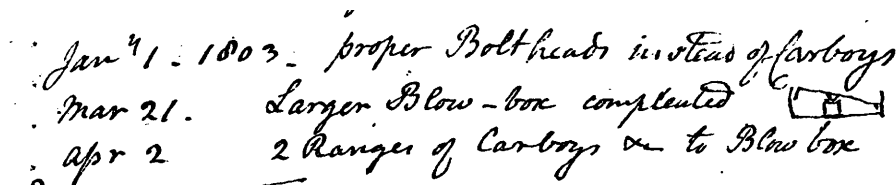 Jan'y 1 - 1803 - proper Boltheads instead of Carboys
Mar 21. Larger Blow-box compleated
Apr 2 2 Ranges of Carboys &c to Blow box